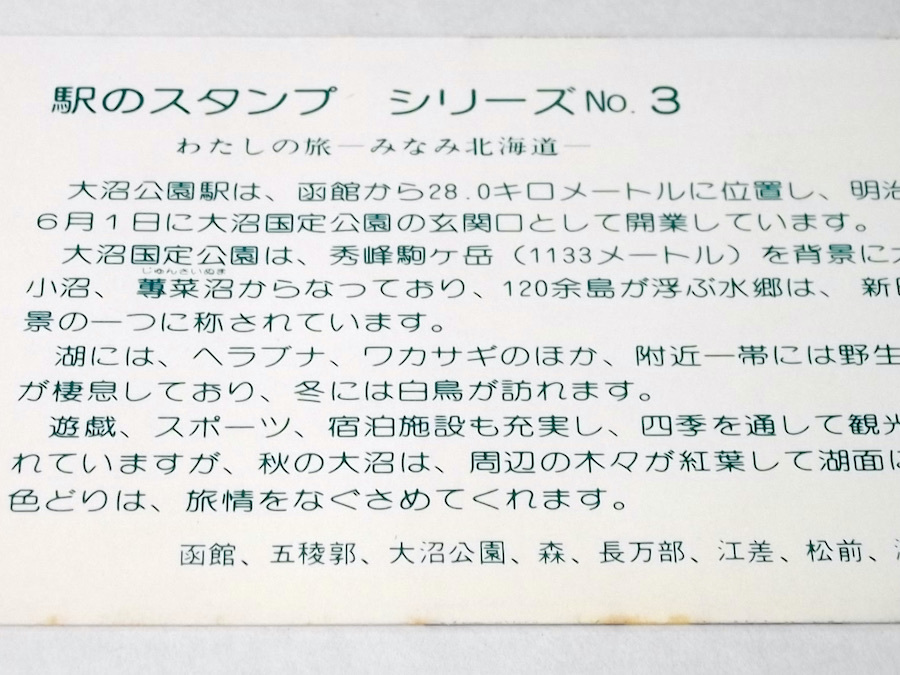 駅のスタンプ　シリーズNo. 3
わたしの旅―みなみ北海道―
大沼公園駅は、函館から28.0キロメートルに位置し、明治
6月1日に大沼国定公園の玄関口として開業しています。
大沼国定公園は、秀峰駒ヶ岳（1133メートル）を背景に
じゅんさいぬま
小沼、蓴菜沼からなっており、120余島が浮ぶ水郷は、新日
景の一つに称されています。
湖には、ヘラブナ、ワカサギのほか、附近一帯には野生
が棲息しており、冬には白鳥が訪れます。
遊戯、スポーツ、宿泊施設も充実し、四季を通して観光
れていますが、秋の大沼は、周辺の木々が紅葉して湖面に
色どりは、旅情をなぐさめてくれます。
函館、五稜郭、大沼公園、森、長万部、江差、松前、